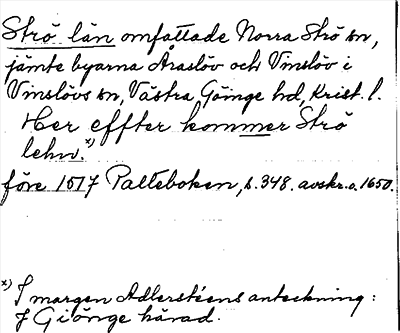 Strö län omfattade Norra Strö sn,
jämte byarna Åraslöv och Vinslöv i
Vinslövs sn, Västra Göinge hd, Krist. l.
Her effter kommer Strö
lehn. x)
före 1517 Palteboken, s. 348. avskr. o. 1650.
x) I margen Adlersteens anteckning:
J Giönge härad.